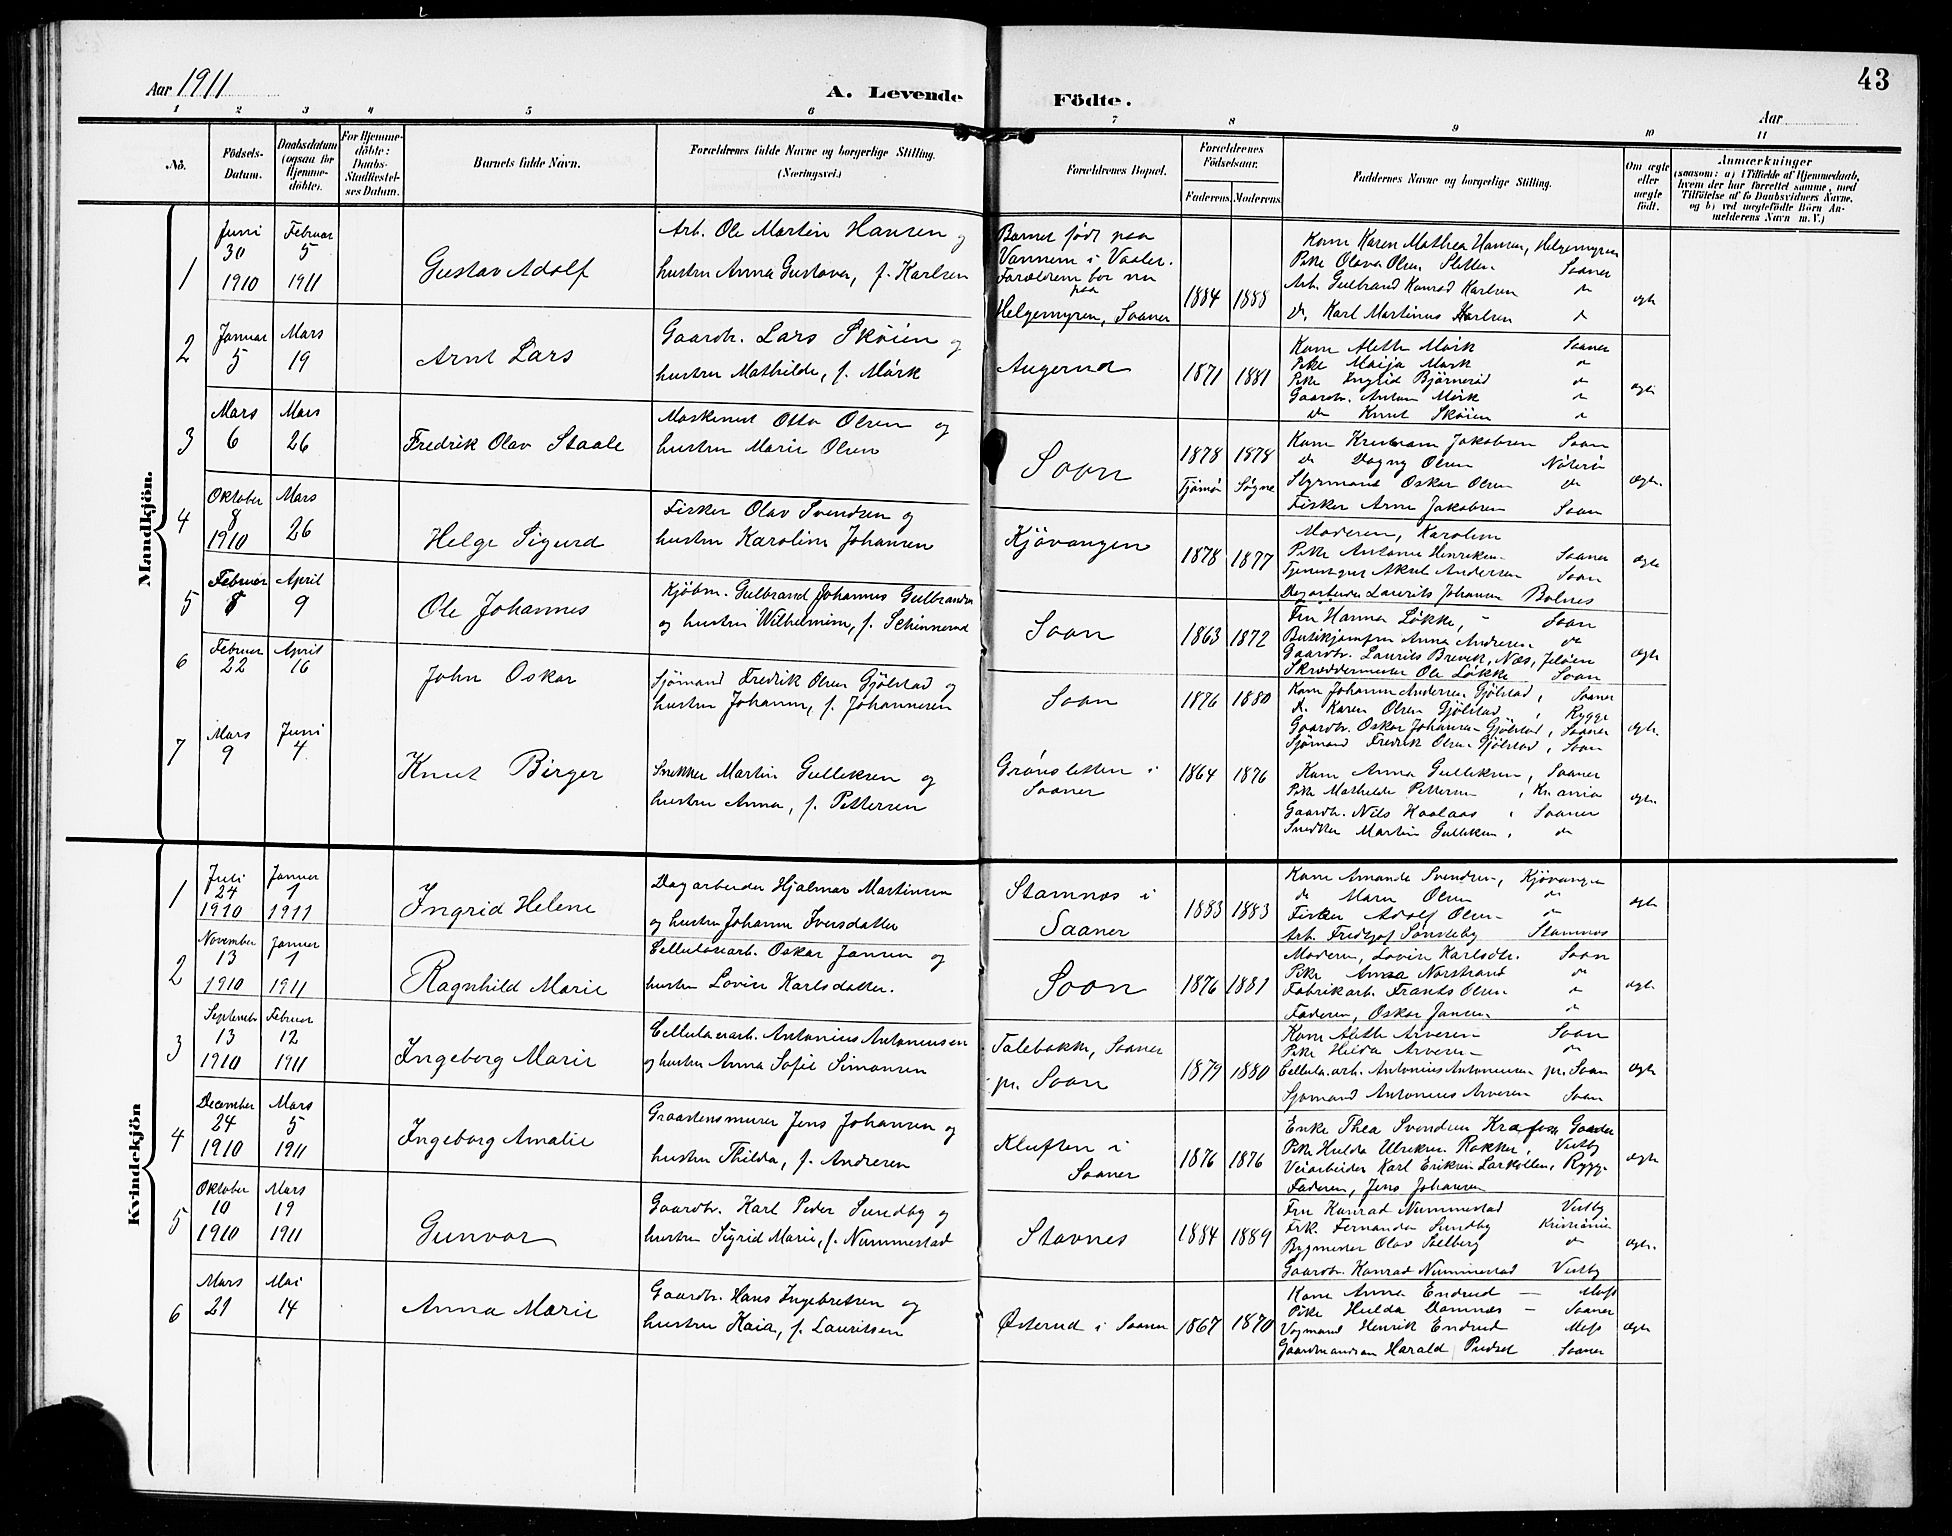 43
Aar 1911
A. Levende Födte.
Aar
1 2 3 4 5 6 7 8 9 10 11
No.
Födsels-Datum.
Daabsdatum (ogsaa for Hjemme-döbte).
For Hjemme-döbte: Daabs-Stadfæstel-ses Datum.
Barnets fulde Navn.
Forældrenes fulde Navne og borgerlige Stilling. (Næringsvei.)
Forældrenes Bopæl.
Forældrenes Födselsaar.
Faderens. Moderens.
Faddernes Navne og borgerlige Stilling.
Om ægte eller uægte födt.
Anmærkninger
(saasom: a) i Tilfælde af Hjemmedaab, hvem der har forrettet samme, med Tilföielse af to Daabsvidners Navne, og b) ved uægtefödte Börn An-melderens Navn m. V.)
Mandkjön.
1
Juni 30 1910
Februar 5 1911
Gustav Adolf
Arb. Ole Martin Hansen og
hustru Anna Gustava, f. Karlsen
Barnet født paa
Vannem i Vaaler.
Forældrene bor nu
paa
Helgemyren, Saaner
1884 1888
Kone Karen Mathea Hansen, Helgemyren
Pike Olava Olsen Sletten Saaner
Arb. Gulbrand Konrad Karlsen do
do. Karl Martinus Karlsen do
ægte
2
Januar 5
Mars 19
Arnt Lars
Gaardbr. Lars Skøien og
hustru Mathilde, f. Mørk
Augerud
1871 1881
Kone Aleth Mørk Saaner
Pike Maija Mørk do
Pike Ingrid Bjørnerød do
Gaardbr. Anton Mørk do
do Knut Skøien do
ægte
3
Mars 6
Mars 26
Fredrik Olav Staale
Maskinist Otto Olsen og
hustru Marie Olsen
Soon
1878 1878
Tjømø Søgne
Kone Kristiane Jakobsen Soon
do Dagny Olsen Nøterø
Styrmand Oskar Olsen do
Fisker Arne Jakobsen Soon
ægte.
4
Oktober 8 1910
Mars 26
Helge Sigurd
Fisker Olav Svendsen og
hustru Karoline Johansen
Kjøvangen
1878 1877
Moderen, Karoline
Pike Antonie Henriksen Saaner
Tjenestegut Aksel Andersen Soon
Dagarbeider Laurits Johansen Bolnes
ægte
5
Februar 8
April 9
Ole Johannes
Kjøbm. Gulbrand Johannes Gulbrandsen
og hustru Wilhelmine, f. Schinnerød
Soon
1863 1872
Fru Hanna Løkke, - Soon
Butikjomfru Anna Andresen do
Gaardbr. Laurits Brevik, Næs, Jeløen
Skræddermester Ole Løkke Soon
ægte
6
Februar 22
April 16
John Oskar
Sjømand Fredrik Olsen Gjølstad og
hustru Johanne, f. Johannesen
Soon
1876 1880
Kone Johanne Andersen Gjølstad, Saaner
do. Karen Olsen Gjølstad, Rygge
Gaardbr. Oskar Johansen Gjølstad, Saaner
Sjømand Fredrik Olsen Gjølstad, Soon
ægte.
7
Mars 9
Juni 4
Knut Birger
Snekker Martin Gulliksen og
hustru Anna, f. Pettersen
Grønsletten i
Saaner
1864 1876
Kone Anna Gulliksen, Saaner
Pike Mathilde Pettersen, Kr.ania
Gaardbr. Nils Haalaas, Saaner
Snedker Martin Gulliksen, do
ægte.
Kvindekjön
1
Juli 24 1910
Januar 1 1911
Ingrid Helene
Dagarbeider Hjalmar Martinsen
og hustru Johanne Iversdatter
Stamnæs i
Saaner
1883 1883
Kone Amande Svendsen, Kjøvangen
do Maren Olsen do
Fisker Adolf Olsen do
Arb. Fredtjof Sønsteby Stamnæs
ægte
2
November 13 1910
Januar 1 1911
Ragnhild Marie
Cellulosearb. Oskar Jansen og
hustru Lovise Karlsdatter.
Soon
1876 1881
Moderen, Lovise Karlsdtr. Soon
Pike Anna Norstrand do
Fabrikarb. Frants Olsen do
Faderen, Oskar Jansen do
ægte
3
September 13 1910
Februar 12 1911
Ingeborg Marie
Cellulosearb. Antonius Antoniussen
og hustru Anna Sofie Simonsen
Talebakke, Saaner
pr. Soon
1879 1880
Kone Aleth Arvesen Soon
Pike Hilda Arvesen do
Cellulosearb. Antonius Antoniussen pr. Soon
Sjømand Antonius Arvesen Soon
ægte
4
December 24 1910
Mars 5 1911
Ingeborg Amalie
Graastensmurer Jens Johansen og
hustru Thilda, f. Andresen
Kluften i
Saaner
1876 1876
Enke Thea Svendsen
Pike Hulda Ulriksen Rokker, Vestby
Veiarbeider Karl Eriksen Larkollen, Rygge
Faderen, Jens Johansen
ægte
5
Oktober 10 1910
Mars 19 1911
Gunvor
Gaardbr. Karl Peder Sundby og
hustru Sigrid Marie, f. Nummestad
Stavnes
1884 1889
Fru Konrad Nummestad Vestby
Frk. Fernanda Sundby Kristiania
Bygmester Olav Solberg do
Gaardbr. Konrad Nummestad Vestby
ægte.
6
Mars 21
Mai 14
Anna Marie
Gaardbr. Hans Ingebretsen og
hustru Kaia, f. Lauritsen
Østerud i Saaner
1867 1870
Kone Anna Endrud - Moss
Pike Hulda Damnæs - Saaner
Vogmand Henrik Endrud Moss
Gaardmandssøn Harald Saaner
ægte